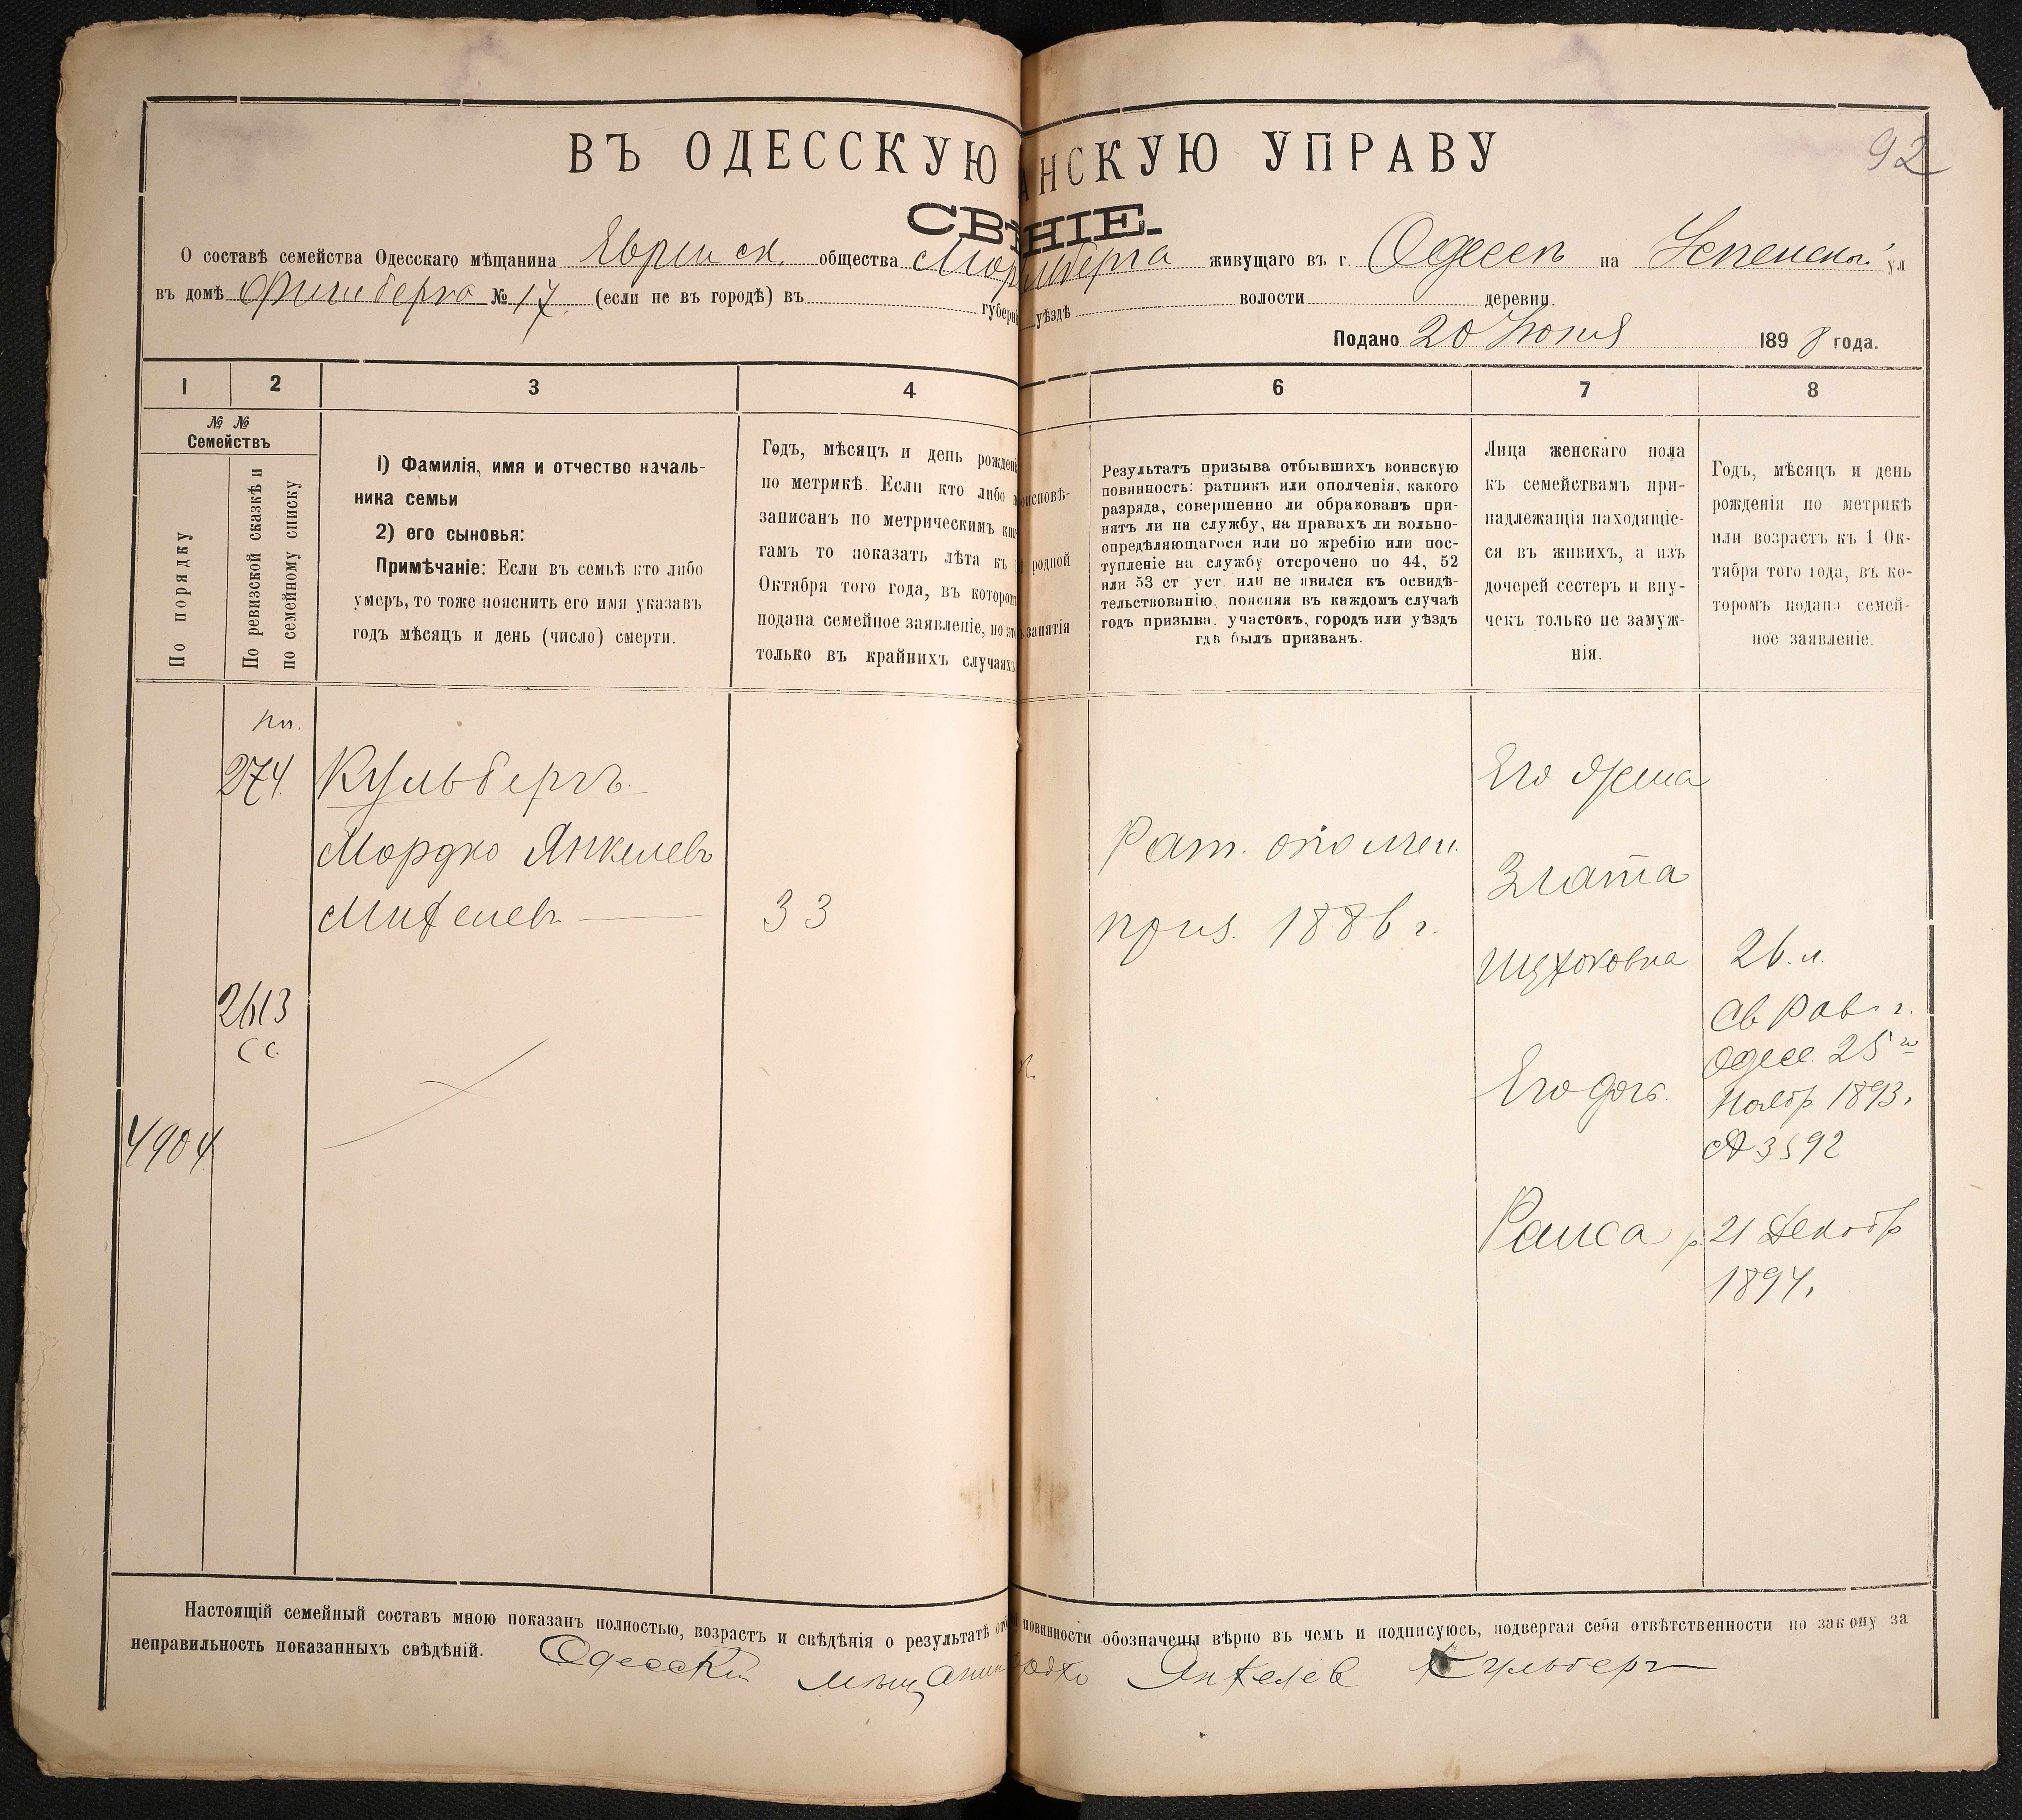 92
ВЪ ОДЕССКУЮ АНСКУЮ УПРАВУ
СВѢ НІЕ.
О составѣ семейства Одесскаго мѣщанина Еврейск. общества Мор льберга живущаго въ г. Одессѣ на Успенской ул
въ домѣ Финкберга № 17. (если не въ городѣ) въ губерн уѣздѣ волости деревни.
Подано 20 Іюня 1898 года.
1 2 3 4 6 7 8
№ №
Семействъ
По порядку
По ревизской сказкѣ и
по семейному списку
1) Фамилія, имя и отчество началь-
ника семьи
2) его сыновья:
Примѣчаніе: Если въ семьѣ кто либо
умеръ, то тоже пояснить его имя указавъ
годъ мѣсяцъ и день (число) смерти.
Годъ, мѣсяцъ и день рожден
по метрикѣ. Если кто либо
записанъ по метрическимъ кни
гамъ то показать лѣта къ 1
Октября того года, въ котором
подана семейное заявленіе, но эт
только въ крайнихъ случаяхъ
оисповѣ-
родной
занятія
Результатъ призыва отбывшихъ воинскую
повинность: ратникъ или ополченія, какого
разряда, совершенно ли обракованъ при-
нятъ ли на службу, на правахъ ли вольно-
опредѣляющагося или по жребію или пос-
тупленіе на службу отсрочено по 44, 52
или 53 ст уст. или не явился къ освидѣ-
тельствованію, поясняя въ каждомъ случаѣ
годъ призыва. участокъ, городъ или уѣздъ
гдѣ былъ призванъ.
Лица женскаго пола
къ семействамъ при-
надлежащія находящіе-
ся въ живихъ, а изъ
дочерей сестеръ и вну-
чекъ только не замуж-
нія.
Годъ, мѣсяцъ и день
рожденія по метрикѣ
или возрастъ къ 1 Ок-
тября того года, въ ко-
торомъ подано семей-
ное заявленіе.
274.
Кульбергъ
Мордко Янкелевъ
33
2613
СС.
4904
Рат. ополчен.
приз. 1886 г.
Его жена
Злата
26. л.
Св Рав г.
Одесс. 25го
Ноябр 1893.
№ 3592
Его дочь.
Раиса р. 21 Декабр
1894.
Настоящій семейный составъ мною показанъ полностью, возрастъ и свѣдѣнія о результатѣ отб повинности обозначены вѣрно въ чемъ и подписуюсь, подвергая себя отвѣтственности по закону за
неправильность показанныхъ свѣдѣній. Одесскій мѣщанин рдко Янкелев Кульберг